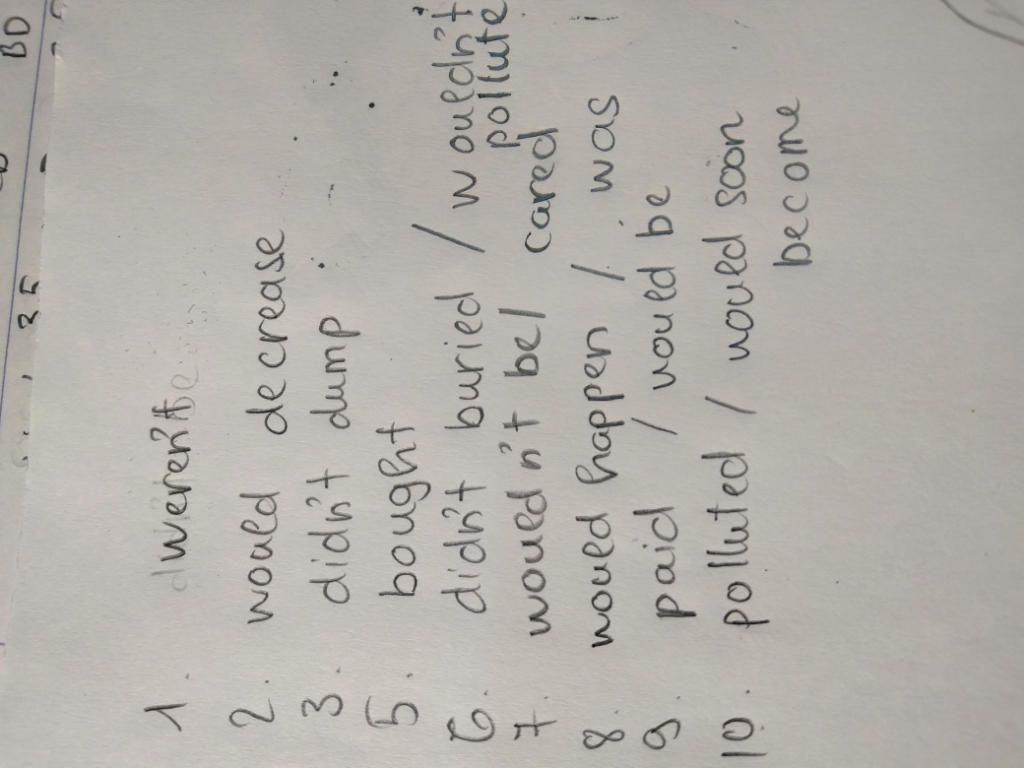 BD
35
1. weren't
2. would decrease
3. didn't dump
5. bought
6. didn't buried / wouldn't pollute
7. wouldn't be / cared
8. would happen / was
9. paid / would be
10. polluted / would soon
become